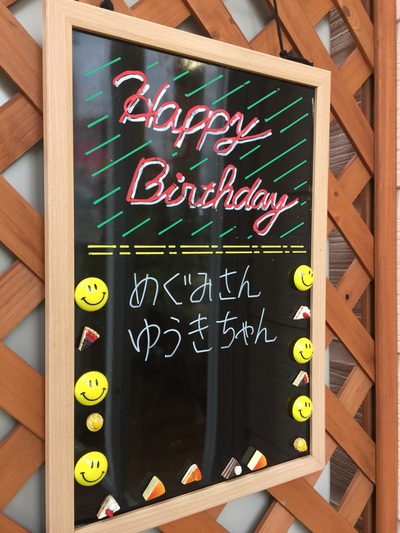 Happy
Birthday
めぐみさん
ゆうきちゃん